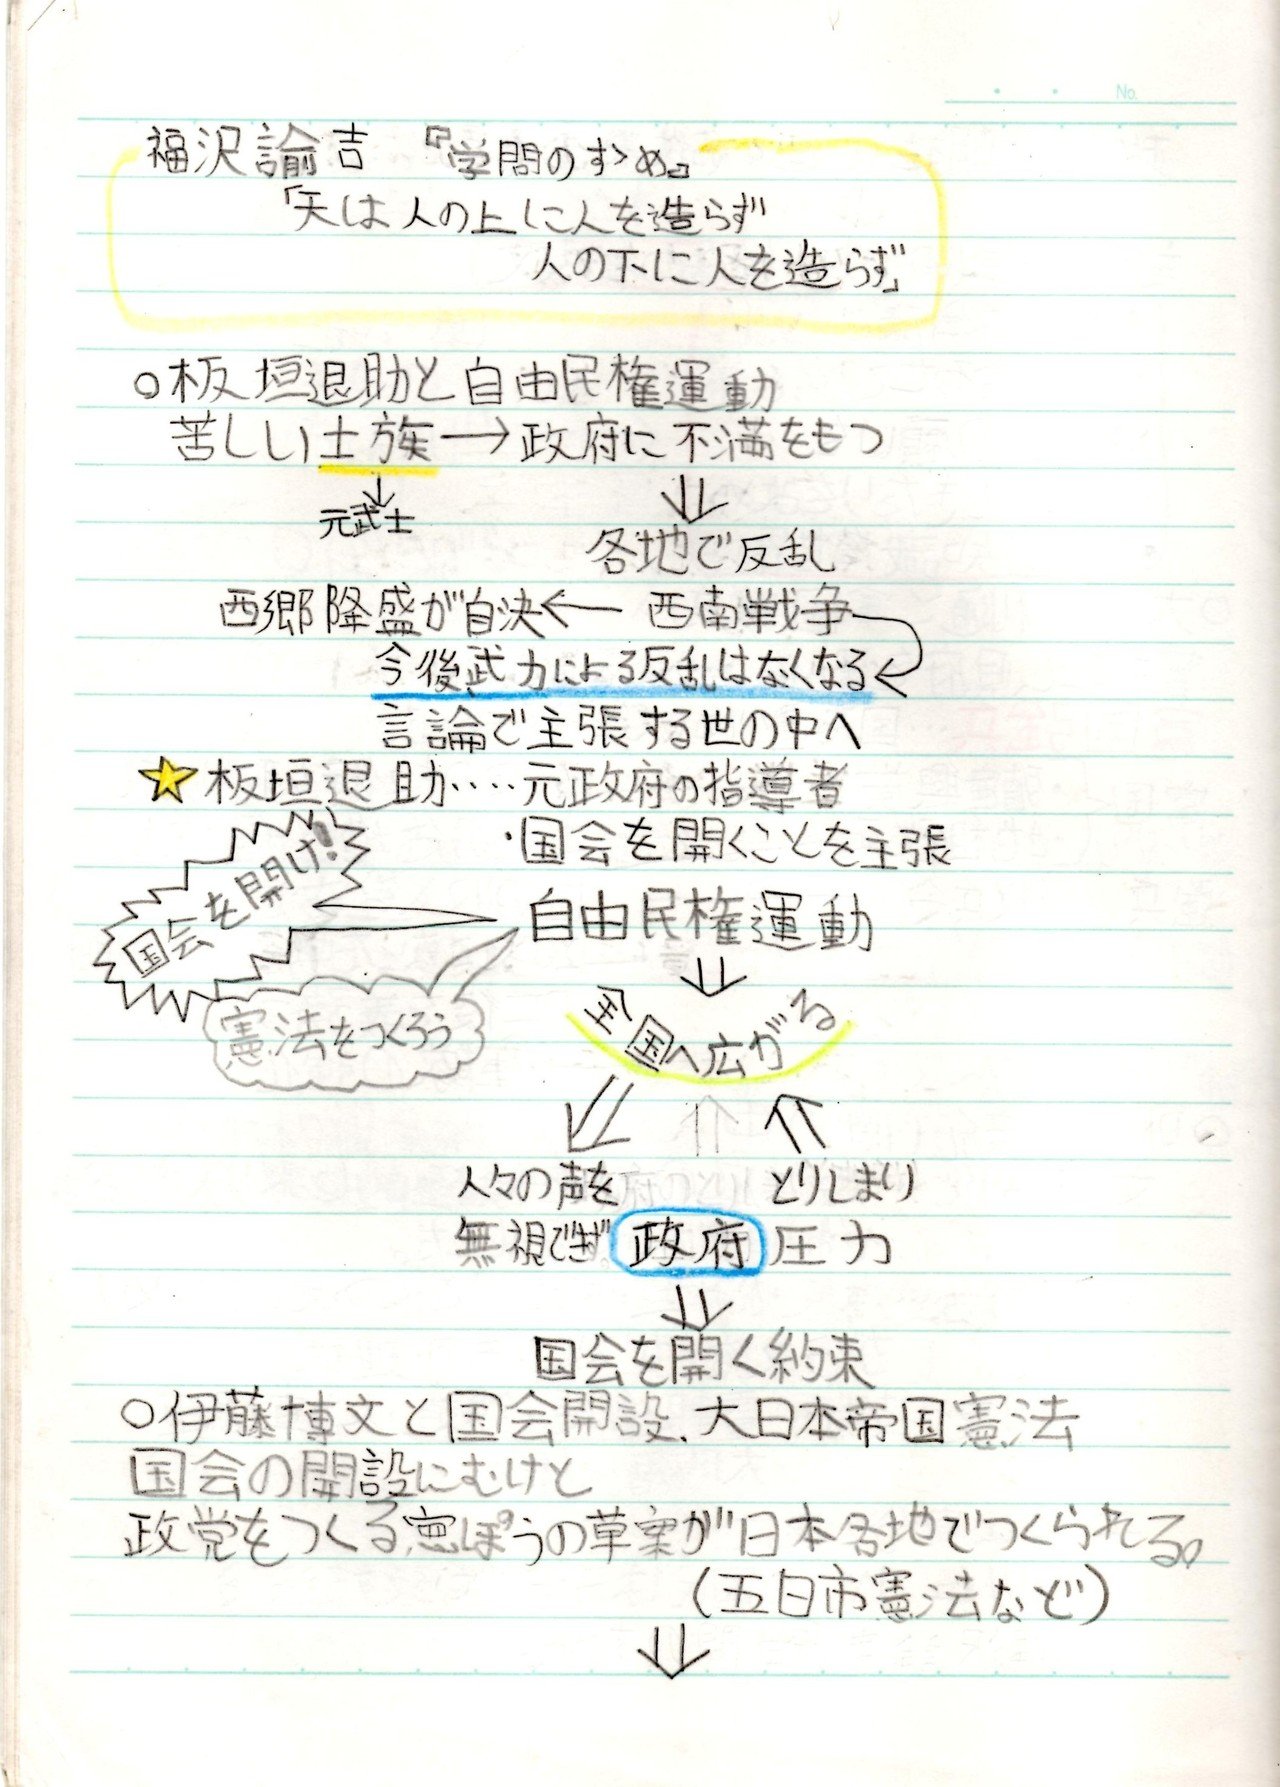 No.
福沢諭吉 『学問のすゝめ』
「天は人の上に人を造らず
人の下に人を造らず」
○板垣退助と自由民権運動
苦しい士族→政府に不満をもつ
↓ ⇓
元武士
各地で反乱
西郷隆盛が自決← 西南戦争
今後武力による反乱はなくなる
言論で主張する世の中へ
★板垣退助‥‥元政府の指導者
・国会を開くことを主張
国会を開け!
自由民権運動
憲法をつくろう
全国へ広がる
人々の声を とりしまり
無視できず 政府 圧力
国会を開く約束
○伊藤博文と国会開設、大日本帝国憲法
国会の開設にむけと
政党をつくる、憲ぽうの草案が日本各地でつくられる。
(五日市憲法など)
⇓